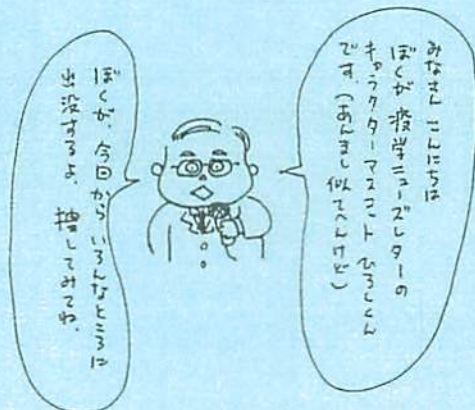 みなさん こんにちは
ぼくが 疫学ニューズレターの
キャラクターマスコット ひろしくん
です。(あんまし似てへんけど)
ぼくが、今回から いろんなところに
出没するよ。 捜してみてね。